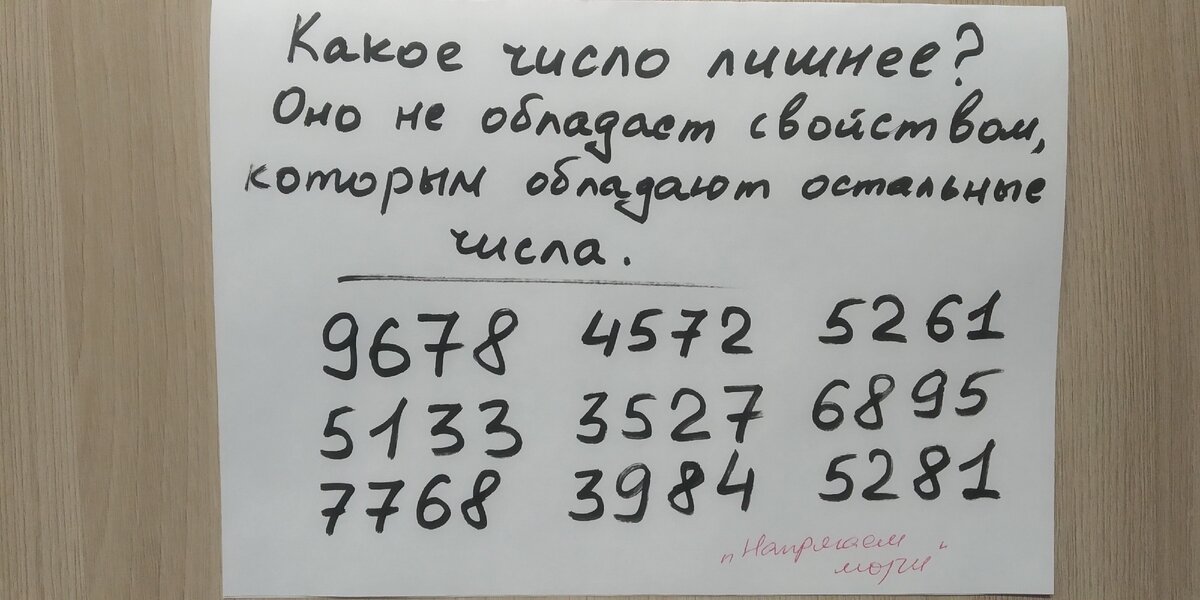 Какое число лишнее?
Оно не обладает свойством,
которым обладают остальные
числа.
9678 4572 5261
5133 3527 6895
7768 3984 5281
"Напрягаем
мозги"